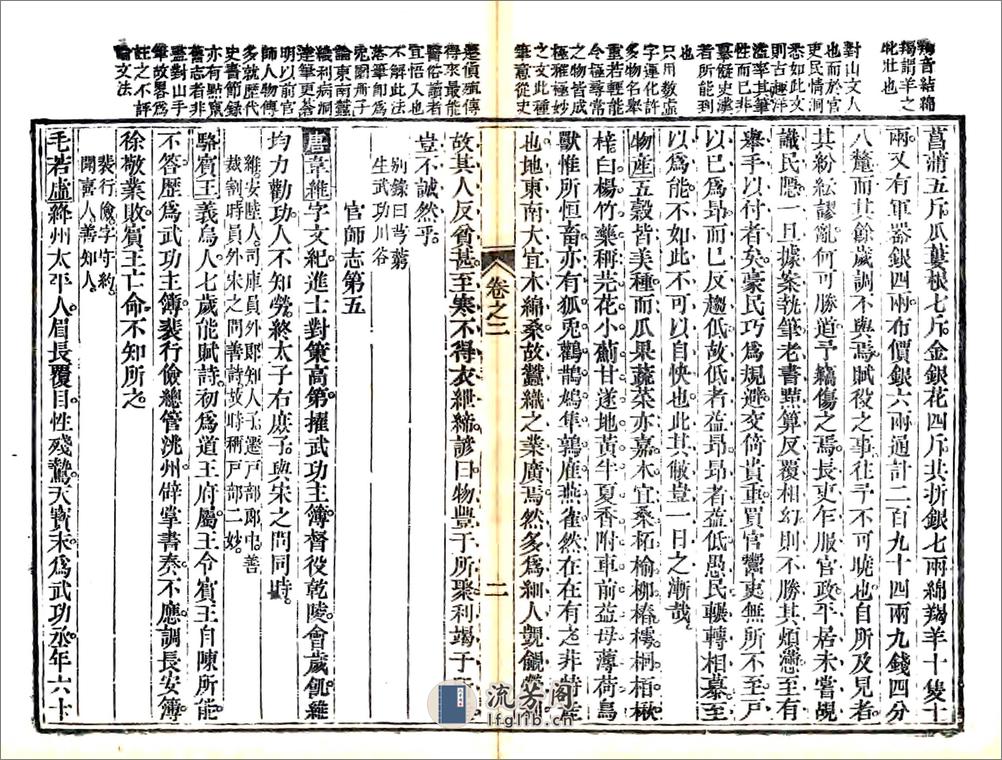 羯音結羯
羯謂羊之
牝壯也
對山文人
也而於官
吏民情洞
悉如此文
則古趣洋
溢率其筆
性而已非
摹擬史漢
者所能到
也
只用數虛
字運化許
多物名舉
重若輕能
令極尋常
之物皆成
極雅極妙
之文此種
筆意從史
得來最能
醫俗讀者
宜悟入也
不解此法
落筆即為
論東南蠶
織利病洞
明以前官
師人物傳
多就歷代
史書節錄
亦有點竄
舊志者非
盡對山手
筆故畧為
註之不評
論文法
菖蒲五斤瓜蔞根七斤金銀花四斤共折銀七兩綿羯羊十隻十
兩又有軍器銀四兩布價銀六兩通計二百九十四兩九錢四分
八釐而其餘歲調不與焉賦役之事往予不可曉也自所及見者
其紛紜謬亂何可勝道予竊傷之焉長吏乍服官政平居未嘗覘
識民隱一旦據案執筆老書算反覆相幻則不勝其煩懣至有
舉手以付者矣豪民巧為規避交倚貴重買官鬻吏無所不至戶
以已為昂而已反趨低故低者益昂昂者益低愚民輾轉相慕至
以為能不如此不可以自快也此其敝豈一日之漸哉
物產五穀皆美種而瓜果蔬菜亦嘉木宜桑柘榆柳椿樗桐栢楸
榛白楊竹藥稱芫花小薊甘遂地黃牛夏香附車前益母薄荷鳥
獸惟所恒畜亦有狐兎鸛鵲鴆隼鶉鴈燕雀然在在有之非特產
也地東南大宜木綿桑故蠶織之業廣焉然多為細人覬覦
故其人反貧甚至寒不得衣紲絺諺曰物豐于所聚利竭于
豈不誠然乎
別錄曰芎藭
生武功川谷
官師志第五
唐韋維字文紀進士對策高第擢武功主簿督役乾陵會歲饑維
均力勸功人不知勞終太子右庶子與宋之問同時
維安陸人司庫員外郎知人子遷戶部郎中善
裁割時員外宋之問善詩故時稱戶部二妙
駱賓王義烏人七歲能賦詩初為道王府屬王令賓王自陳所能
不答歷為武功主簿裴行儉總管洮州辟掌書奏不應調長安簿
徐敬業敗賓王亡命不知所之
裴行儉字守約
聞喜人善知人
毛若虛絳州太平人眉長覆目性殘鷙天寶末為武功丞年六十
卷之二
二
流芳阁
lfglib.cn